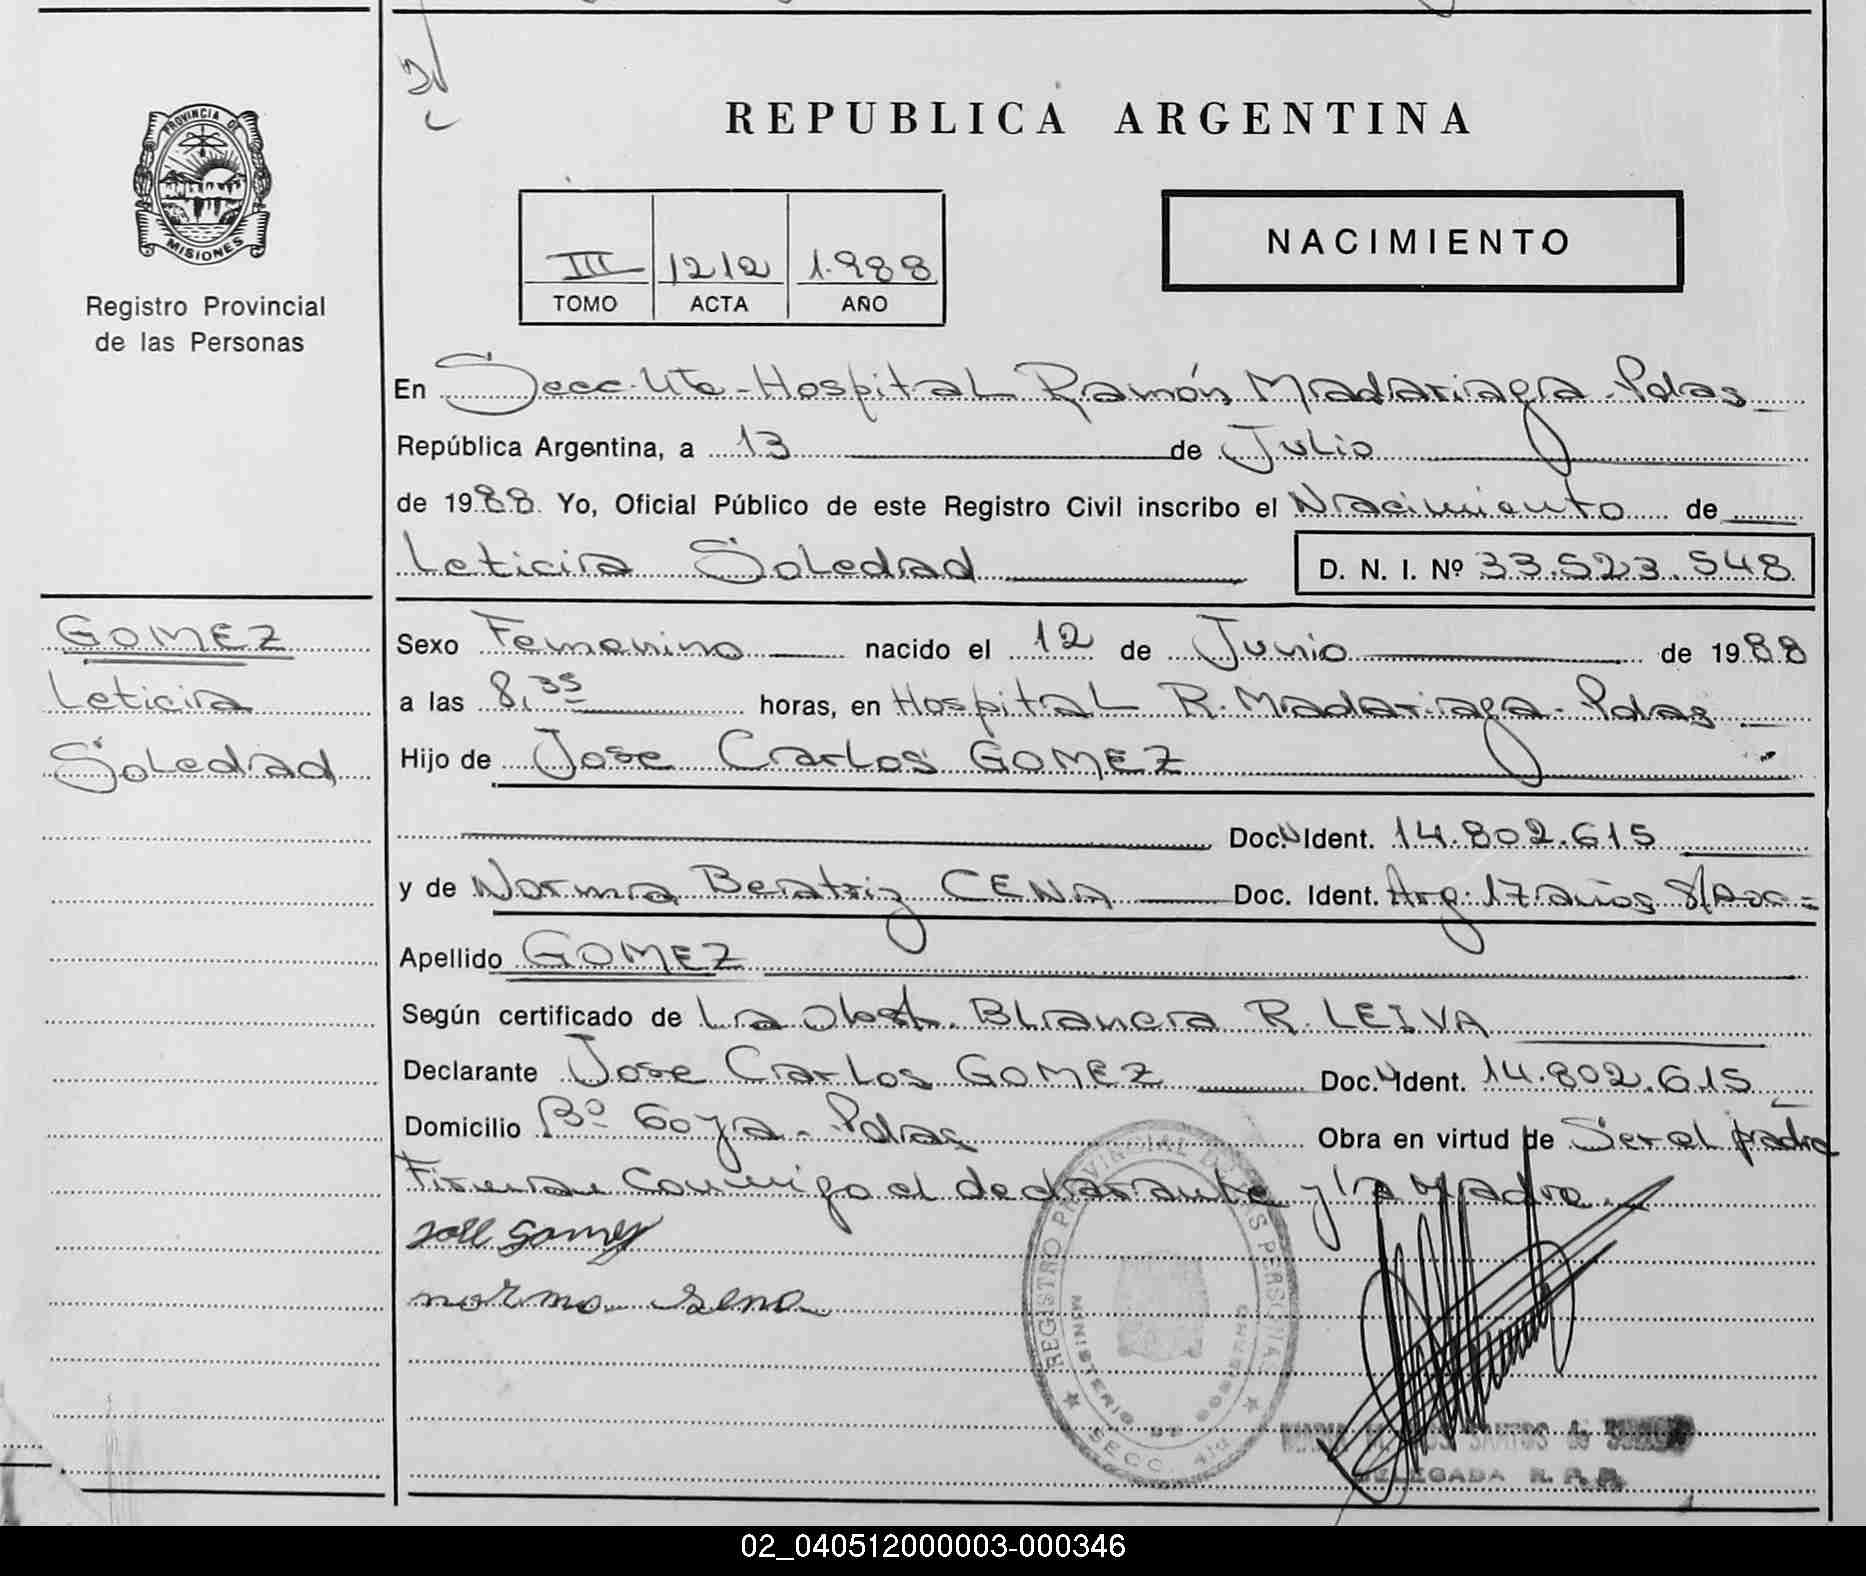 REPUBLICA ARGENTINA
PROVINCIA DE
MISIONES
Registro Provincial
de las Personas
III 1212 1.988
TOMO ACTA AÑO
NACIMIENTO
En Secc. 4ta - Hospital Ramón Madariaga - Pdas
República Argentina, a 13 de Julio
de 1988 Yo, Oficial Público de este Registro Civil inscribo el Nacimiento de
Leticia Soledad D. N. I. Nº 33.523.548
GOMEZ
Leticia
Soledad
Sexo Femenino nacido el 12 de Junio de 1988
a las 8,35 horas, en Hospital R. Madariaga - Pdas
Hijo de Jose Carlos GOMEZ
Doc. Ident. 14.802.615
y de Norma Beatriz CENA Doc. Ident. Arg. 17 años S/Doc =
Apellido GOMEZ
Según certificado de La Obst. Blanca R. LEIVA
Declarante Jose Carlos GOMEZ Doc. Ident. 14.802.615
Domicilio Bº Goya - Pdas Obra en virtud de Ser el padre
Firman Conmigo el declarante y la Madre.
jose gomez
norma sena
REGISTRO PROVINCIAL DE LAS PERSONAS
MINISTERIO DE GOBIERNO
SECC. 4ta
SANTOS de
DELEGADA R. P. P.
02_040512000003-000346